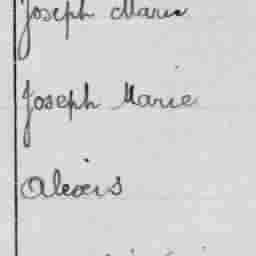 Joseph Marie
Joseph Marie
Alexis